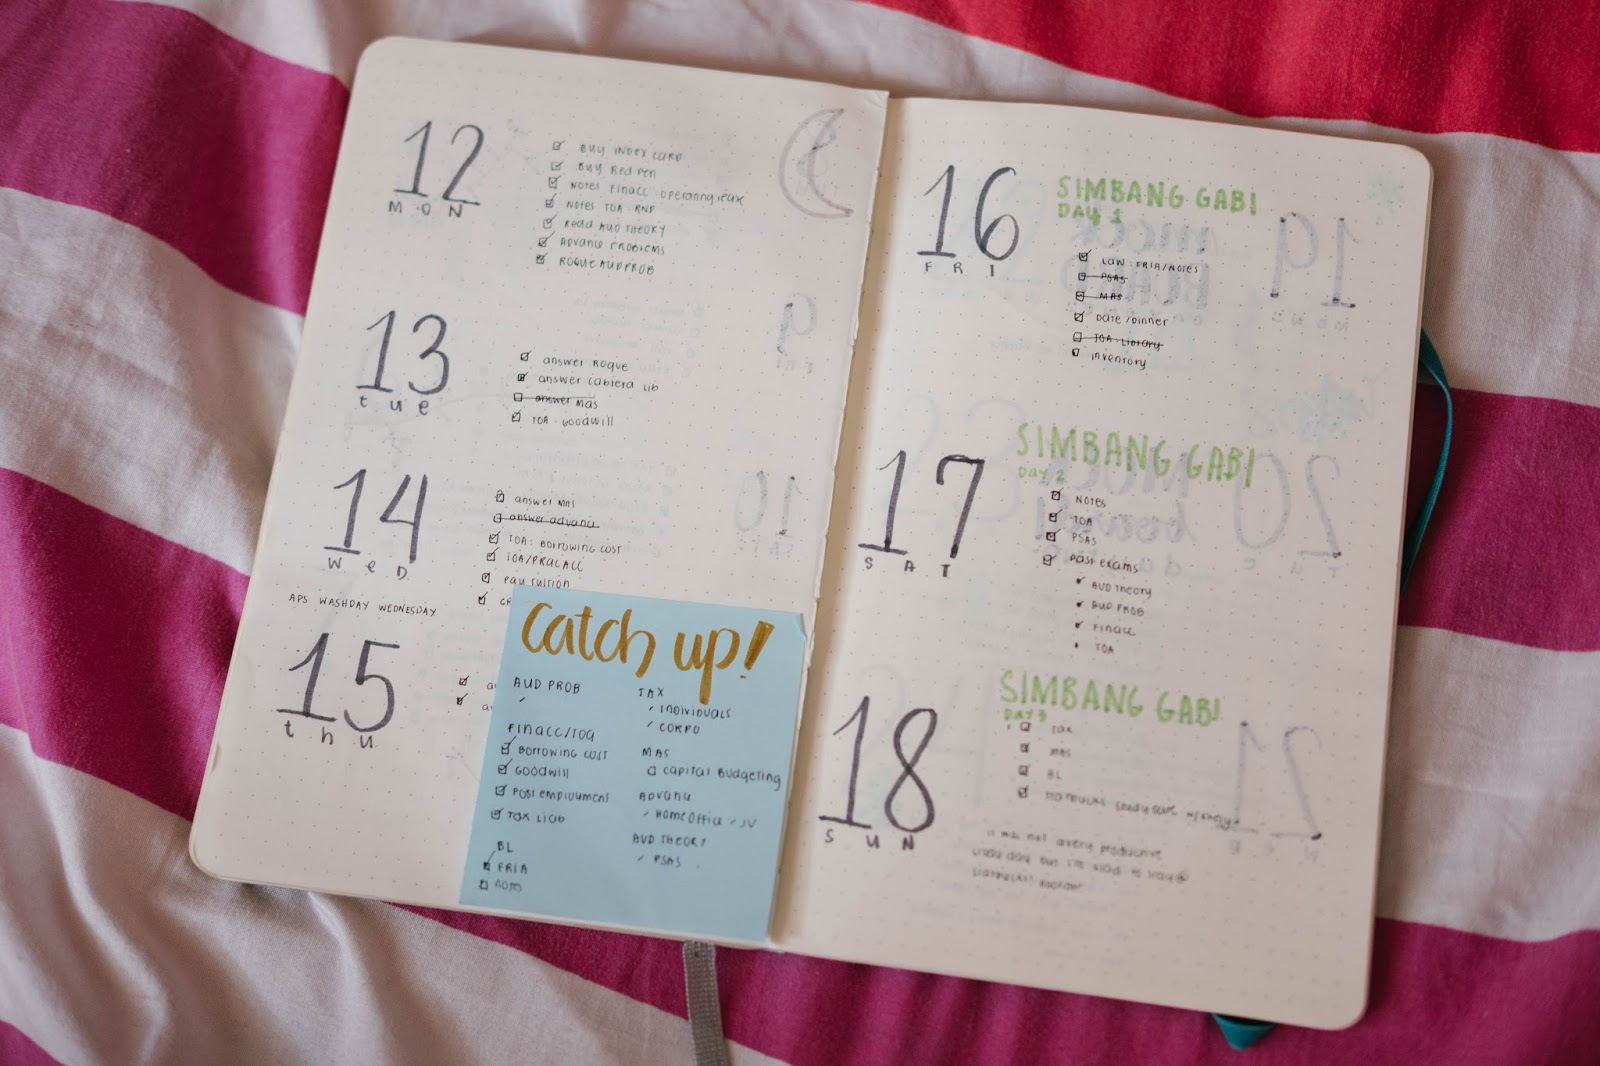 12
MON
BUY INDEX CARD
BUY RED PEN
NOTES FINACC: OPERATING LEASE
NOTES TOA: RNP
READ AUD THEORY
ADVANCED PROBLEMS
ROQUE AUD PROB
13
tue
answer ROQUE
answer cabrera lib
answer MAS
TOA: GOODWILL
14
WeD
answer MAS
answer advance
TOA: BORROWING COST
TOA/PRAC ACC
pay tuition
CR
APS WASHDAY WEDNESDAY
15
thu
a
an
Catch up!
AUD PROB
FINACC/TOA
BORROWING COST
GOODWILL
POST EMPLOYMENT
TAX LIAB
BL
FRIA
NOTES
TAX
INDIVIDUALS
CORPO
MAS
CAPITAL BUDGETING
ADVANCE
HOME OFFICE JV
AUD THEORY
PSAS
16
FRI
SIMBANG GABI
DAY 1
LAW: FRIA/NOTES
PSAS
MAS
Date/Dinner
TOA: Library
inventory
17
SAT
SIMBANG GABI
DAY 2
NOTES
TOA
PSAS
PAST EXAMS
AUD THEORY
AUD PROB
FINACC
TOA
18
SUN
SIMBANG GABI
DAY 3
TAX
MAS
BL
it was not a very productive
study day but i'm glad to